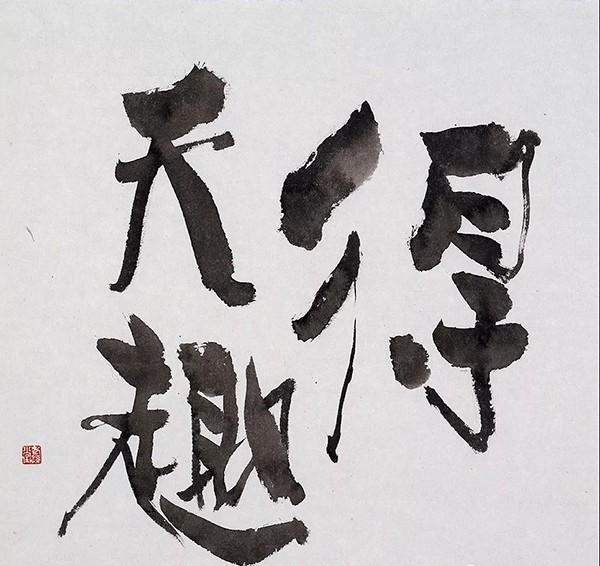 得
天趣